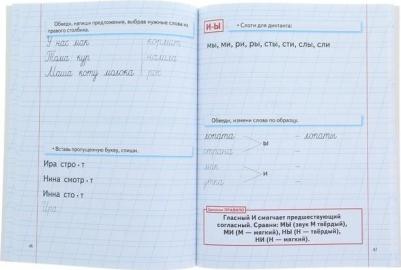 Обведи, напиши предложение, выбрав нужные слова из
правого столбика.
У нас мак кормит
Тома кур налила
Маша коту молока рос
• Вставь пропущенную букву, спиши.
Ира стро . т
Нина смотр . т
Инна сто . т
Ира
46
И-Ы
• Слоги для диктанта:
мы, ми, ри, ры, сты, сти, слы, сли
Обведи, измени слова по образцу.
лопата ы – лопаты
страна –
мак и –
утка –
Запомни ПРАВИЛО
Гласный И смягчает предшествующий
согласный. Сравни: МЫ (звук М твёрдый),
МИ (М — мягкий), НЫ (Н — твёрдый),
НИ (Н — мягкий).
47